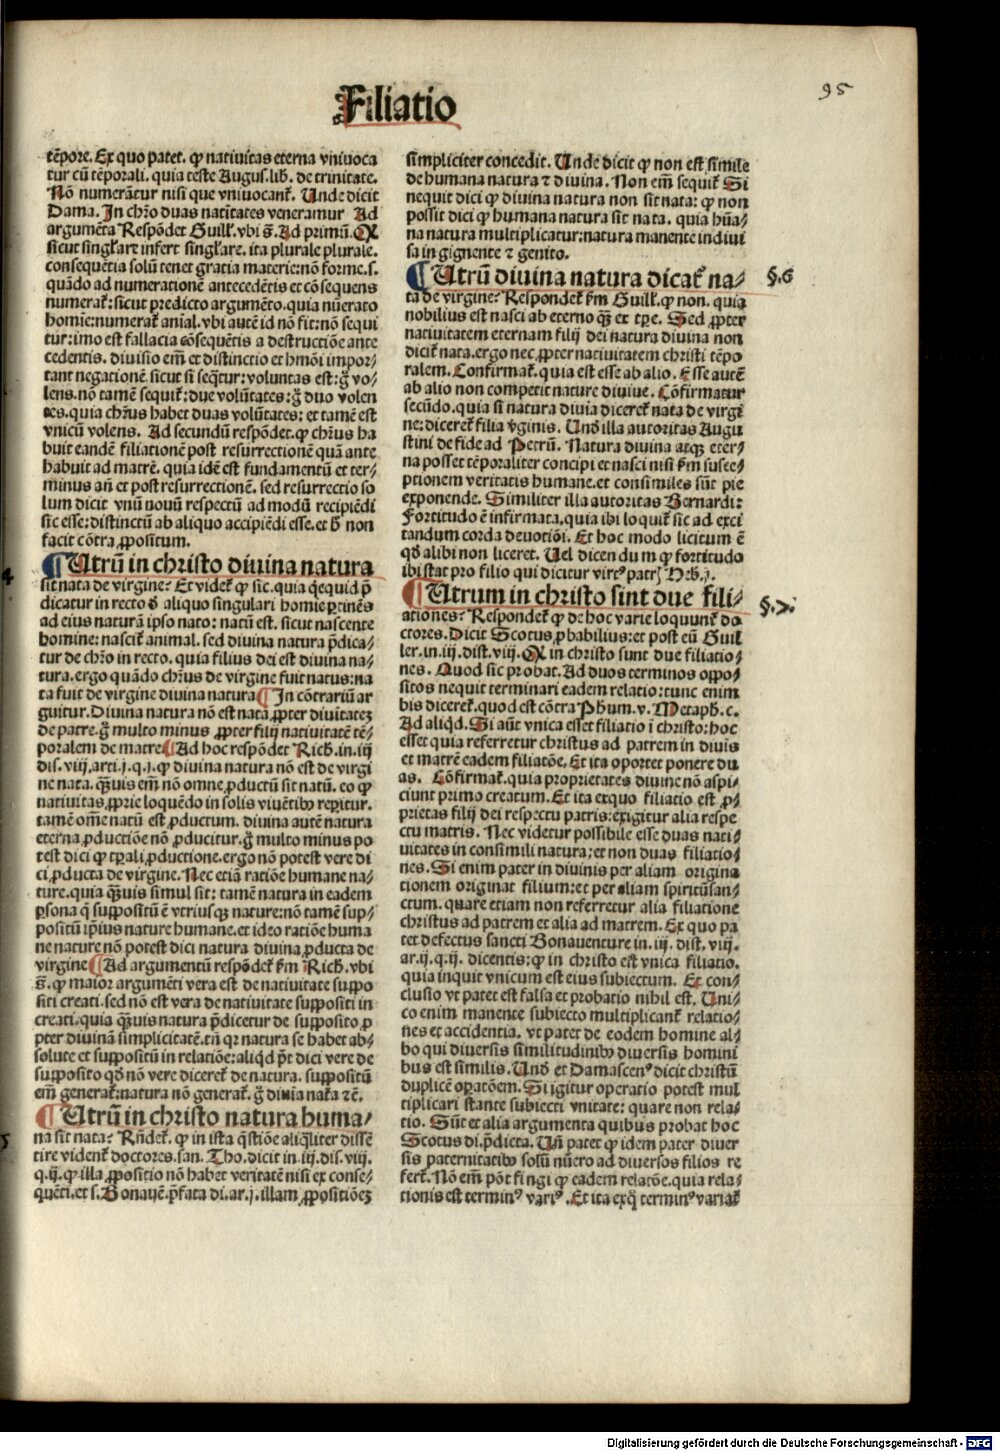 Filiatio
95
tēpore. Ex quo patet. ꝙ natiuitas eterna vniuoca
tur cū tēporali. quia teste Augus. lib. de trinitate.
Nō numerātur nisi que vniuocant᷑. Unde dicit
Dama. In chr̄o duas natiītates veneramur Ad
argumēta Respōdet Guill᷑. vbi s̄. Ad primū. Q
sicut singl᷑are infert singl᷑are. ita plurale plurale.
consequētia solū tenet gratia materie: nō forme. s.
quādo ad numerationē antecedētis et cōsequens
numerat᷑: sicut predicto argumēto. quia nūerato
homīe: numerat᷑ aīal. vbi autē id nō fit: nō sequi
tur: imo est fallacia cōsequētis a destructiōe ante
cedentis. diuisio em̄ et distinctio et hmōi impor⸗
tant negationē. sicut si seq̄tur: voluntas est: g̊ vo⸗
lens. nō tamē sequit᷑: due volūtates: g̊ duo volen
tes. quia chr̄us habet duas volūtates: et tamē est
vnicū volens. Ad secundū respōdet. ꝙ chr̄us ha
buit eandē filiationē post resurrectionē quā ante
habuit ad matrē. quia idē est fundamentū et ter⸗
minus añ et post resurrectionē. sed resurrectio so
lum dicit vnū nouū respectū ad modū recipiēdi
sic esse: distinctū ab aliquo accipiēdi esse. et h̄ non
facit cōtra ꝓpositum.
¶ Utrū in christo diuina natura
sit nata de virgine? Et videt᷑ ꝙ sic. quia q̄equid p̄
dicatur in recto de aliquo singulari homīe ꝑtinēs
ad eius naturā ipso nato: natū est. sicut nascente
homine: nascit᷑ animal. sed diuina natura p̄dica⸗
tur de chr̄o in recto. quia filius dei est diuina na⸗
tura. ergo quādo chr̄us de virgine fuit natus: na
ta fuit de virgine diuina natura ¶ In cōtrariū ar
guitur. Diuina natura nō est nata ꝓpter diuītateꝫ
de patre. g̊ multo minus ꝓpter filij natiuitatē tē⸗
poralem de matre ¶ Ad hoc respōdet Rich. in. iij
dis. viij. arti. j. q. j. ꝙ diuina natura nō est de virgi
ne nata. q̄uis em̄ nō omne ꝓductū sit natū. eo ꝙ
natiuitas ꝓprie loquēdo in solis viuētibꝰ reꝑitur.
tamē om̄e natū est ꝓductum. diuina autē natura
eterna ꝓductiōe nō ꝓducitur. g̊ multo minus po
test dici ꝙ tꝑali ꝓductione. ergo nō potest vere di
ci ꝓducta de virgine. Nec etiā ratiōe humane na⸗
ture. quia q̄uis simul sit: tamē natura in eadem
ꝑsona q̄ suppositū ē vtriusqꝫ nature: nō tamē sup⸗
positū ip̄ius nature humane. et ideo ratiōe huma
ne nature nō potest dici natura diuina ꝓducta de
virgine ¶ Ad argumentū respōdet᷑ f̄m Rich. vbi
s̄. ꝙ maior argumēti vera est de natiuitate suppo
siti creati. sed nō est vera de natiuitate suppositi in
creati. quia q̄uis natura p̄dicetur de supposito ꝓ
pter diuinā simplicitatē. tn̄ qr natura se habet ab⸗
solute et suppositū in relatiōe: aliqd pt̄ dici vere de
supposito qd nō vere diceret᷑ de natura. suppositū
em̄ generat᷑: natura nō generat᷑. g̊ diuīa nata ⁊c̄.
¶ Utrū in christo natura huma⸗
na sit nata? Rn̄det᷑. ꝙ in ista q̄stiōe aliq̄liter dissē
tire vident᷑ doctores. san. Tho. dicit in. iij. dis. viij.
q. ij. ꝙ illa ꝓpositio nō habet veritatē nisi ex conse⸗
quēti. et s. Bonauē. p̄fata di. ar. j. illam ꝓpositiōeꝫ
simpliciter concedit. Unde dicit ꝙ non est simile
de humana natura ⁊ diuina. Non em̄ sequit᷑ Si
nequit dici ꝙ diuina natura non sit nata: ꝙ non
possit dici ꝙ humana natura sit nata. quia hūa⸗
na natura multiplicatur: natura manente indiui
sa in gignente ⁊ genito.
¶ Utrū diuina natura dicat᷑ na⸗
§.6
ta de virgine? Respondet᷑ f̄m Guill᷑. ꝙ non. quia
nobilius est nasci ab eterno q̄ꝫ ex tꝑe. Sed ꝓpter
natiuitatem eternam filij dei natura diuina non
dicit᷑ nata. ergo nec ꝓpter natiuitatem christi tēpo
ralem. Confirmat᷑. quia est esse ab alio. Esse autē
ab alio non competit nature diuiue. Cōfirmatur
secūdo. quia si natura diuīa diceret᷑ nata de virgi
ne: diceret᷑ filia v̄ginis. Und̄ illa autoritas Augu
stini de fide ad Petrū. Natura diuina atqꝫ eter⸗
na posset tēporaliter concipi et nasci nisi f̄m susce⸗
ptionem veritatis humane. et consimiles sūt pie
exponende. Similiter illa autoritas Bernardi:
Fortitudo ē infirmata. quia ibi loquit᷑ sic ad exci
tandum corda deuotiōi. Et hoc modo licitum ē
qd alibi non liceret. Uel dicendum ꝙ fortitudo
ibi stat pro filio qui dicitur virtꝰ patrꝭ Heb. j.
¶ Utrum in christo sint due fili⸗
§.7.
ationes? Respondet᷑ ꝙ de hoc varie loquunt᷑ do
ctores. Dicit Scotus ꝓbabilius: et post eū Guil
ler. in. iij. dist. viij. Q in christo sunt due filiatio⸗
nes. Quod sic probat. Ad duos terminos oppo⸗
sitos nequit terminari eadem relatio: tunc enim
bis diceret᷑. quod est cōtra Phum. v. Metaph. c.
Ad aliqd. Si aūt vnica esset filiatio ī christo: hoc
esset quia referretur christus ad patrem in diuīs
et matrē eadem filiatōe. Et ita oportet ponere du
as. Cōfirmat᷑. quia proprietates diuine nō aspi⸗
ciunt primo creatum. Et ita exquo filiatio est ꝓ⸗
prietas filij dei respectu patris: exigitur alia respe
ctu matris. Nec videtur possibile esse duas nati⸗
uitates in consimili natura: et non duas filiatio⸗
nes. Si enim pater in diuinis per aliam origina
tionem originat filium: et per aliam spiritūsan⸗
ctum. quare etiam non referretur alia filiatione
christus ad patrem et alia ad matrem. Ex quo pa
tet defectus sancti Bonauenture in. iij. dist. viij.
ar. ij. q. ij. dicentis: ꝙ in christo est vnica filiatio.
quia inquit vnicum est eius subiectum. Et con⸗
clusio vt patet est falsa et probatio nihil est. Uni⸗
co enim manente subiecto multiplicant᷑ relatio⸗
nes et accidentia. vt patet de eodem homine al⸗
bo qui diuersis similitudinibꝰ diuersis homini
bus est similis. Und̄ et Damascenꝰ dicit christū
duplicē oꝑatōem. Si igitur operatio potest mul
tiplicari stante subiecti vnitate: quare non rela⸗
tio. Sūt et alia argumenta quibus probat hoc
Scotus di. p̄dicta. Un̄ patet ꝙ idem pater diuer
sis paternitatibꝰ solū nūero ad diuersos filios re
fert᷑. Nō em̄ pōt fingi ꝙ eadem relatōe. quia rela⸗
tionis est terminꝰ variꝰ. Et ita exq̊ terminꝰ variat᷑